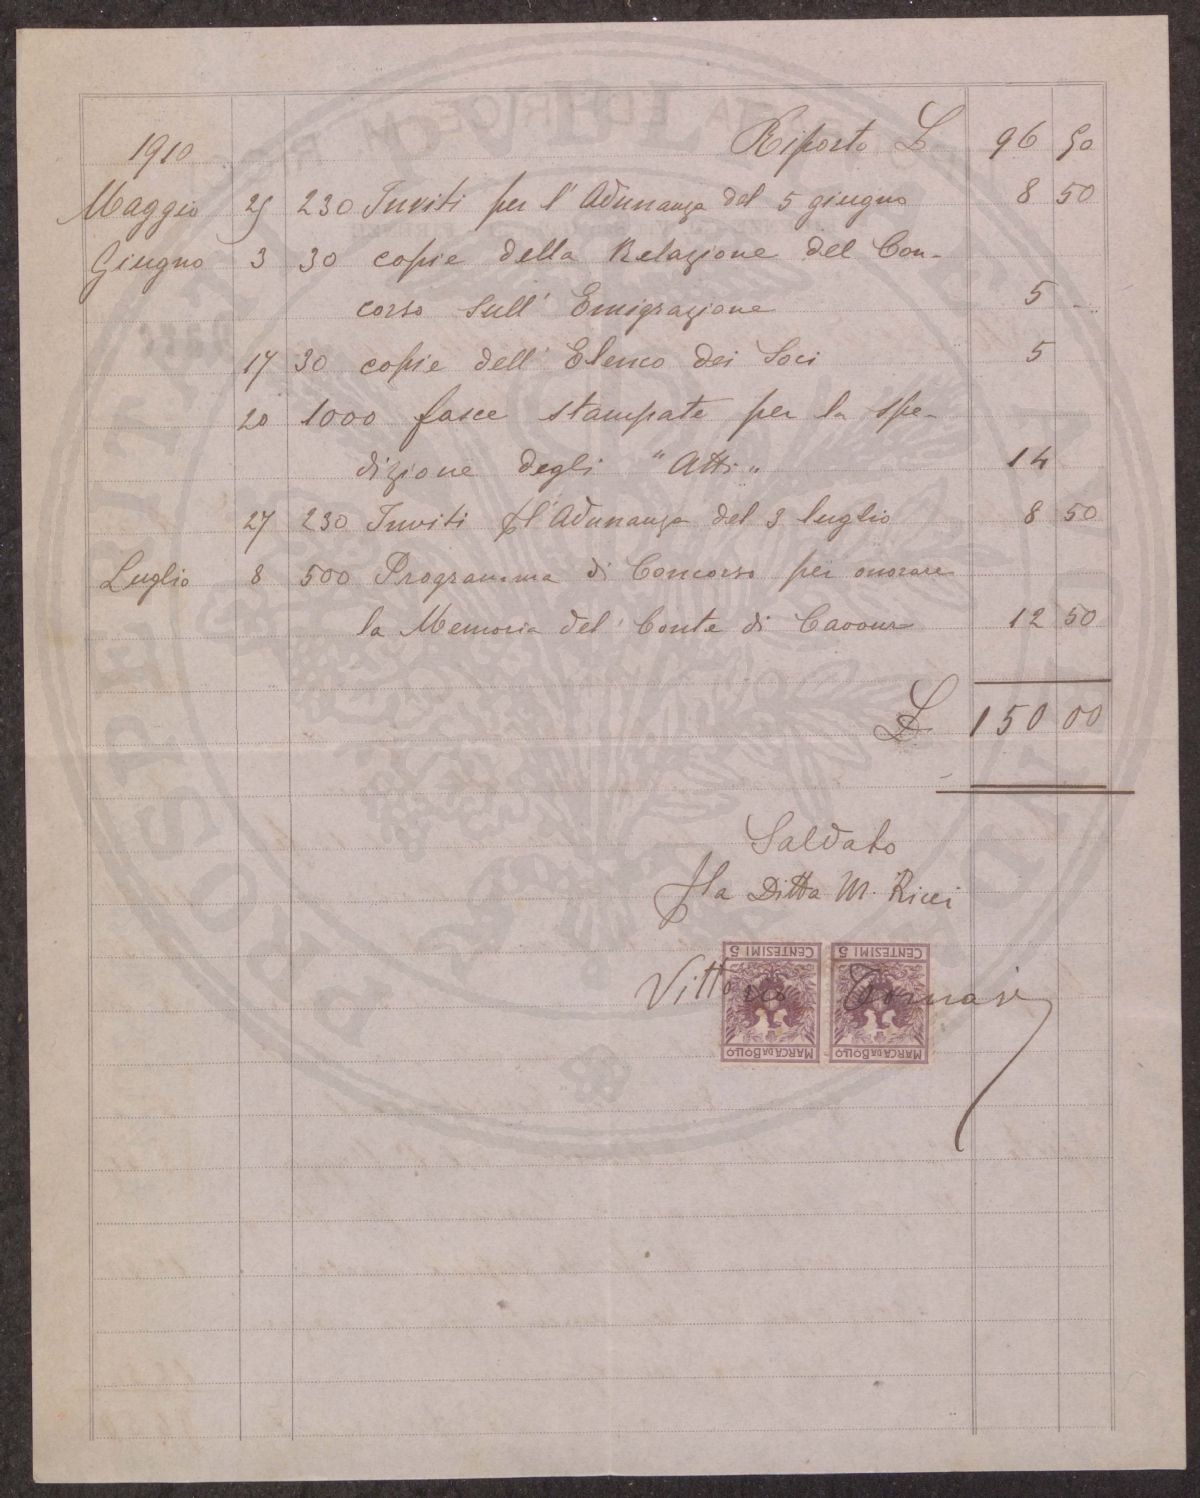 1910 Riporto L 96 50
Maggio 25 230 Inviti per l'Adunanza del 5 giugno 8 50
Giugno 3 30 copie della Relazione del Con-
corso sull'Emigrazione 5
17 30 copie dell'Elenco dei Soci 5
20 1000 fasce stampate per la spe-
dizione degli "Atti" 14
27 230 Inviti p l'Adunanza del 3 luglio 8 50
Luglio 8 500 Programma di Concorso per onorare
la Memoria del Conte di Cavour 12 50
L 150 00
Saldato
p la Ditta M. Ricci
CENTESIMI 5 CENTESIMI 5
Vittorio Tomasi
MARCA DA BOLLO MARCA DA BOLLO